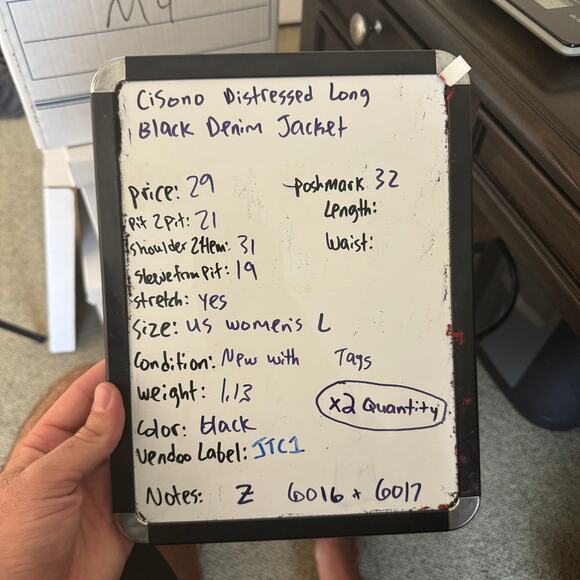 M4
Cisono Distressed Long
Black Denim Jacket
price: 29
poshmark 32
pit 2 pit: 21
Length:
shoulder 2 Hem: 31
Waist:
sleeve from pit: 19
stretch: yes
Size: US women's L
Condition: New with Tags
weight: 1.13
x2 Quantity
Color: black
Vendoo Label: JTC1
Notes: Z 6016 + 6017